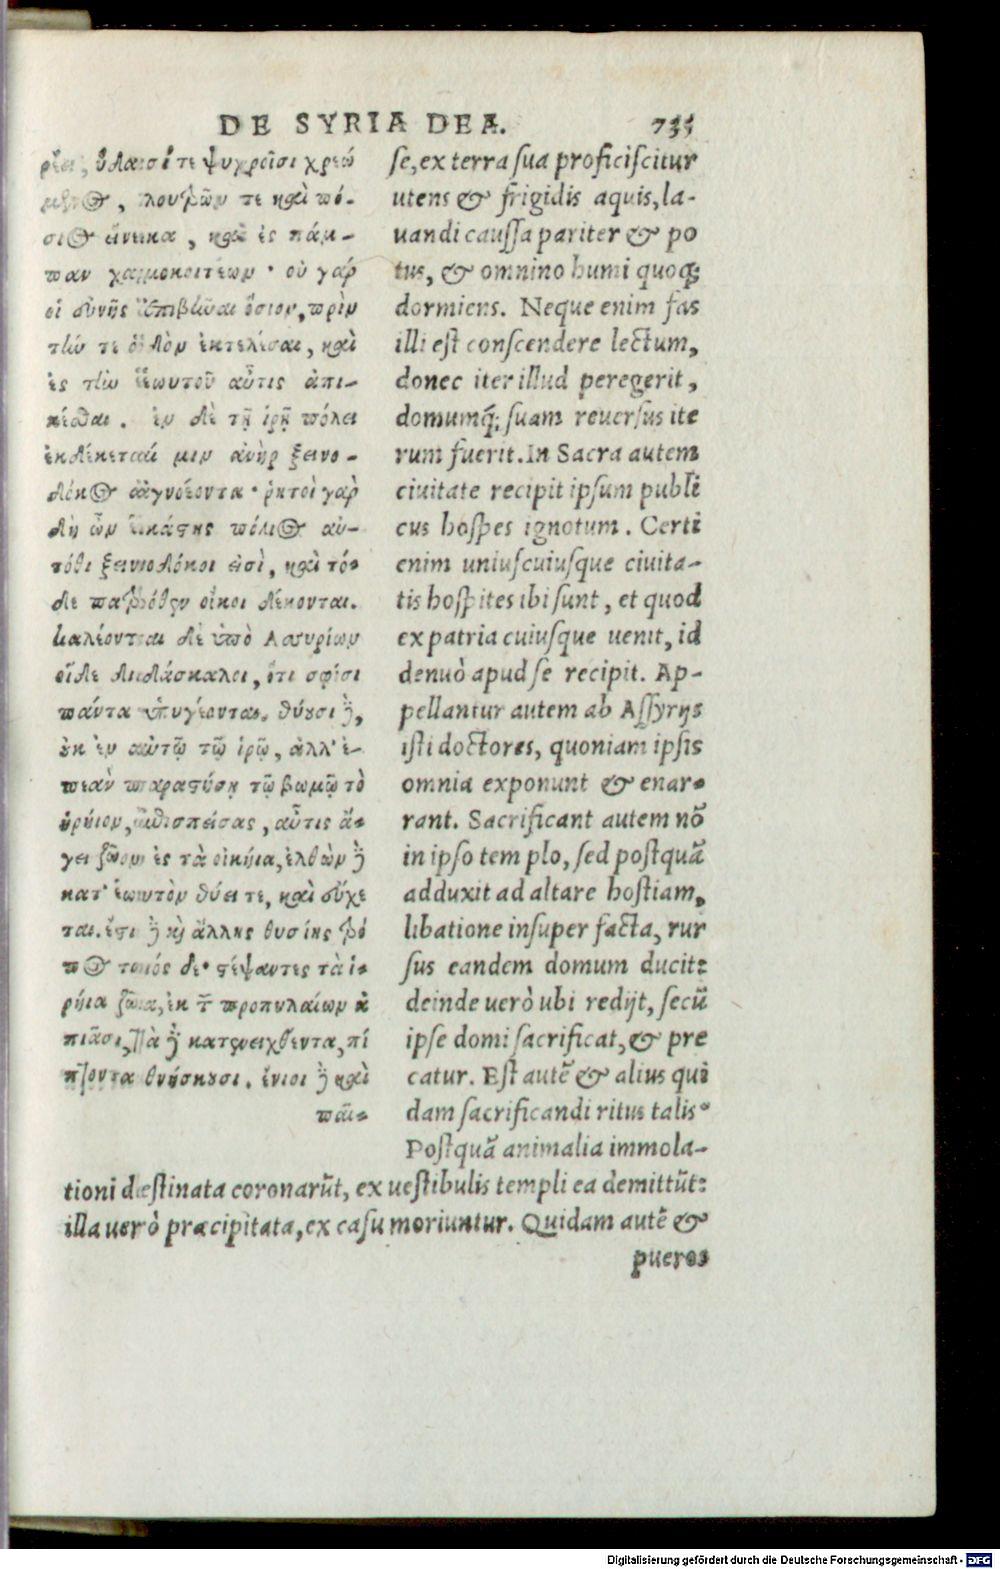 DE SYRIA DEA. 735
ρέει, ὕδασί τε ψυχροῖσι χρεώ
μενος, λουτρῶν τε καὶ πό-
σιος εἵνεκα, καὶ ἐς πάμ-
παν χαμοκοιτέων· οὐ γάρ
οἱ εὐνῆς ἐπιβῶναι ὅσιον, πρὶν
τήν τε ὁδὸν ἐκτελέσαι, καὶ
ἐς τὴν ἑωυτοῦ αὖτις ἀπι-
κέσθαι. ἐν δὲ τῇ ἱρῇ πόλει
ἐκδέκεταί μιν ἀνὴρ ξεινο-
δόκος ἀγνοέοντα· ῥητοὶ γὰρ
δὴ ὦν ἑκάστης πόλιος αὐ-
τόθι ξεινοδόκοι εἰσὶ, καὶ τό-
δε πατρόθεν οἴκοι δέκονται.
καλέονται δὲ ὑπὸ Ἀσσυρίων
οἵδε διδάσκαλοι, ὅτι σφίσι
πάντα ὑπηγέονται. θύουσι δὲ,
οὐκ ἐν αὐτῷ τῷ ἱρῷ, ἀλλ' ἐ-
πεὰν παραστήσῃ τῷ βωμῷ τὸ
ἱρήιον, ἐπισπείσας, αὖτις ἄ-
γει ζωὸν ἐς τὰ οἰκήια, ἐλθὼν δὲ
κατ' ἑωυτὸν θύει τε, καὶ εὔχε
ται. ἔστι δὲ καὶ ἄλλης θυσίης τρό
πος τοιόσδε· στέψαντες τὰ ἱ-
ρήια ζῶα, ἐκ τῶν προπυλαίων ἀ
πιᾶσι, τὰ δὲ κατενειχθέντα, πί
πτοντα θνήσκουσι. ἔνιοι δὲ καὶ
παῖ-
se, ex terra sua proficiscitur
utens & frigidis aquis, la-
uandi caussa pariter & po
tus, & omnino humi quoq;
dormiens. Neque enim fas
illi est conscendere lectum,
donec iter illud peregerit,
domumq́; suam reuersus ite
rum fuerit. In Sacra autem
ciuitate recipit ipsum publi
cus hospes ignotum. Certi
enim uniuscuiusque ciuita-
tis hospites ibi sunt, et quod
ex patria cuiusque uenit, id
denuò apud se recipit. Ap-
pellantur autem ab Assyrijs
isti doctores, quoniam ipsis
omnia exponunt & enar-
rant. Sacrificant autem nō
in ipso templo, sed postquā
adduxit ad altare hostiam,
libatione insuper facta, rur
sus eandem domum ducit:
deinde uerò ubi redijt, secū
ipse domi sacrificat, & pre
catur. Est autē & alius qui
dam sacrificandi ritus talis.
Postquā animalia immola-
tioni dæstinata coronarūt, ex uestibulis templi ea demittūt:
illa uerò præcipitata, ex casu moriuntur. Quidam autē &
pueros
Digitalisierung gefördert durch die Deutsche Forschungsgemeinschaft - DFG